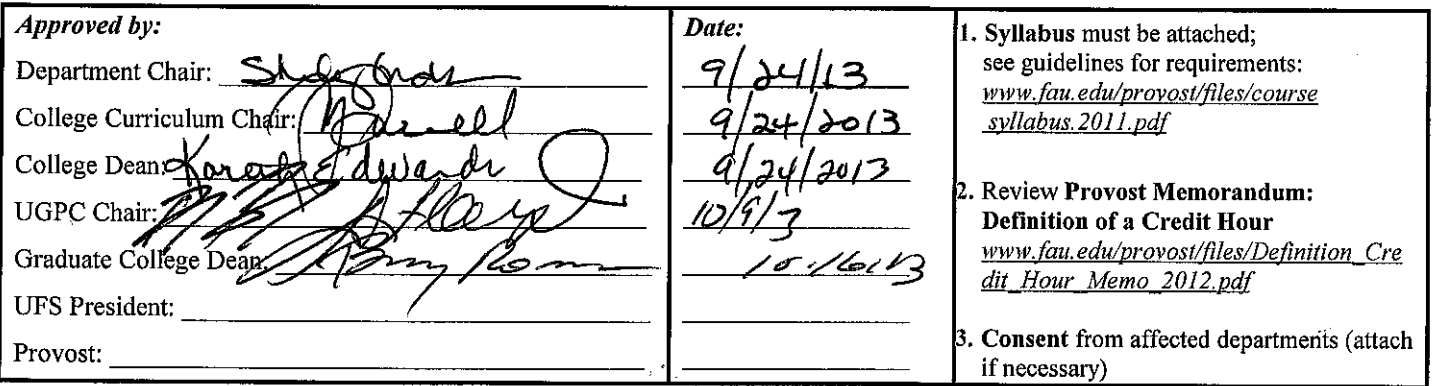 Approved by:
Department Chair:
College Curriculum Chair:
College Dean: Karen Edwards
UGPC Chair:
Graduate College Dean:
UFS President:
Provost:
Date:
9/24/13
9/24/2013
9/24/2013
10/9/13
10.16.13
1. Syllabus must be attached;
see guidelines for requirements:
www.fau.edu/provost/files/course
_syllabus.2011.pdf
2. Review Provost Memorandum:
Definition of a Credit Hour
www.fau.edu/provost/files/Definition_Cre
dit_Hour_Memo_2012.pdf
3. Consent from affected departments (attach
if necessary)